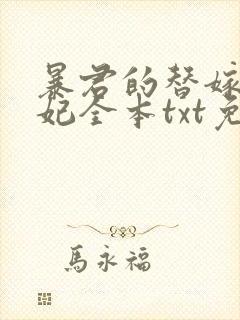 暴君的替嫁
妃全本txt免
馬永福